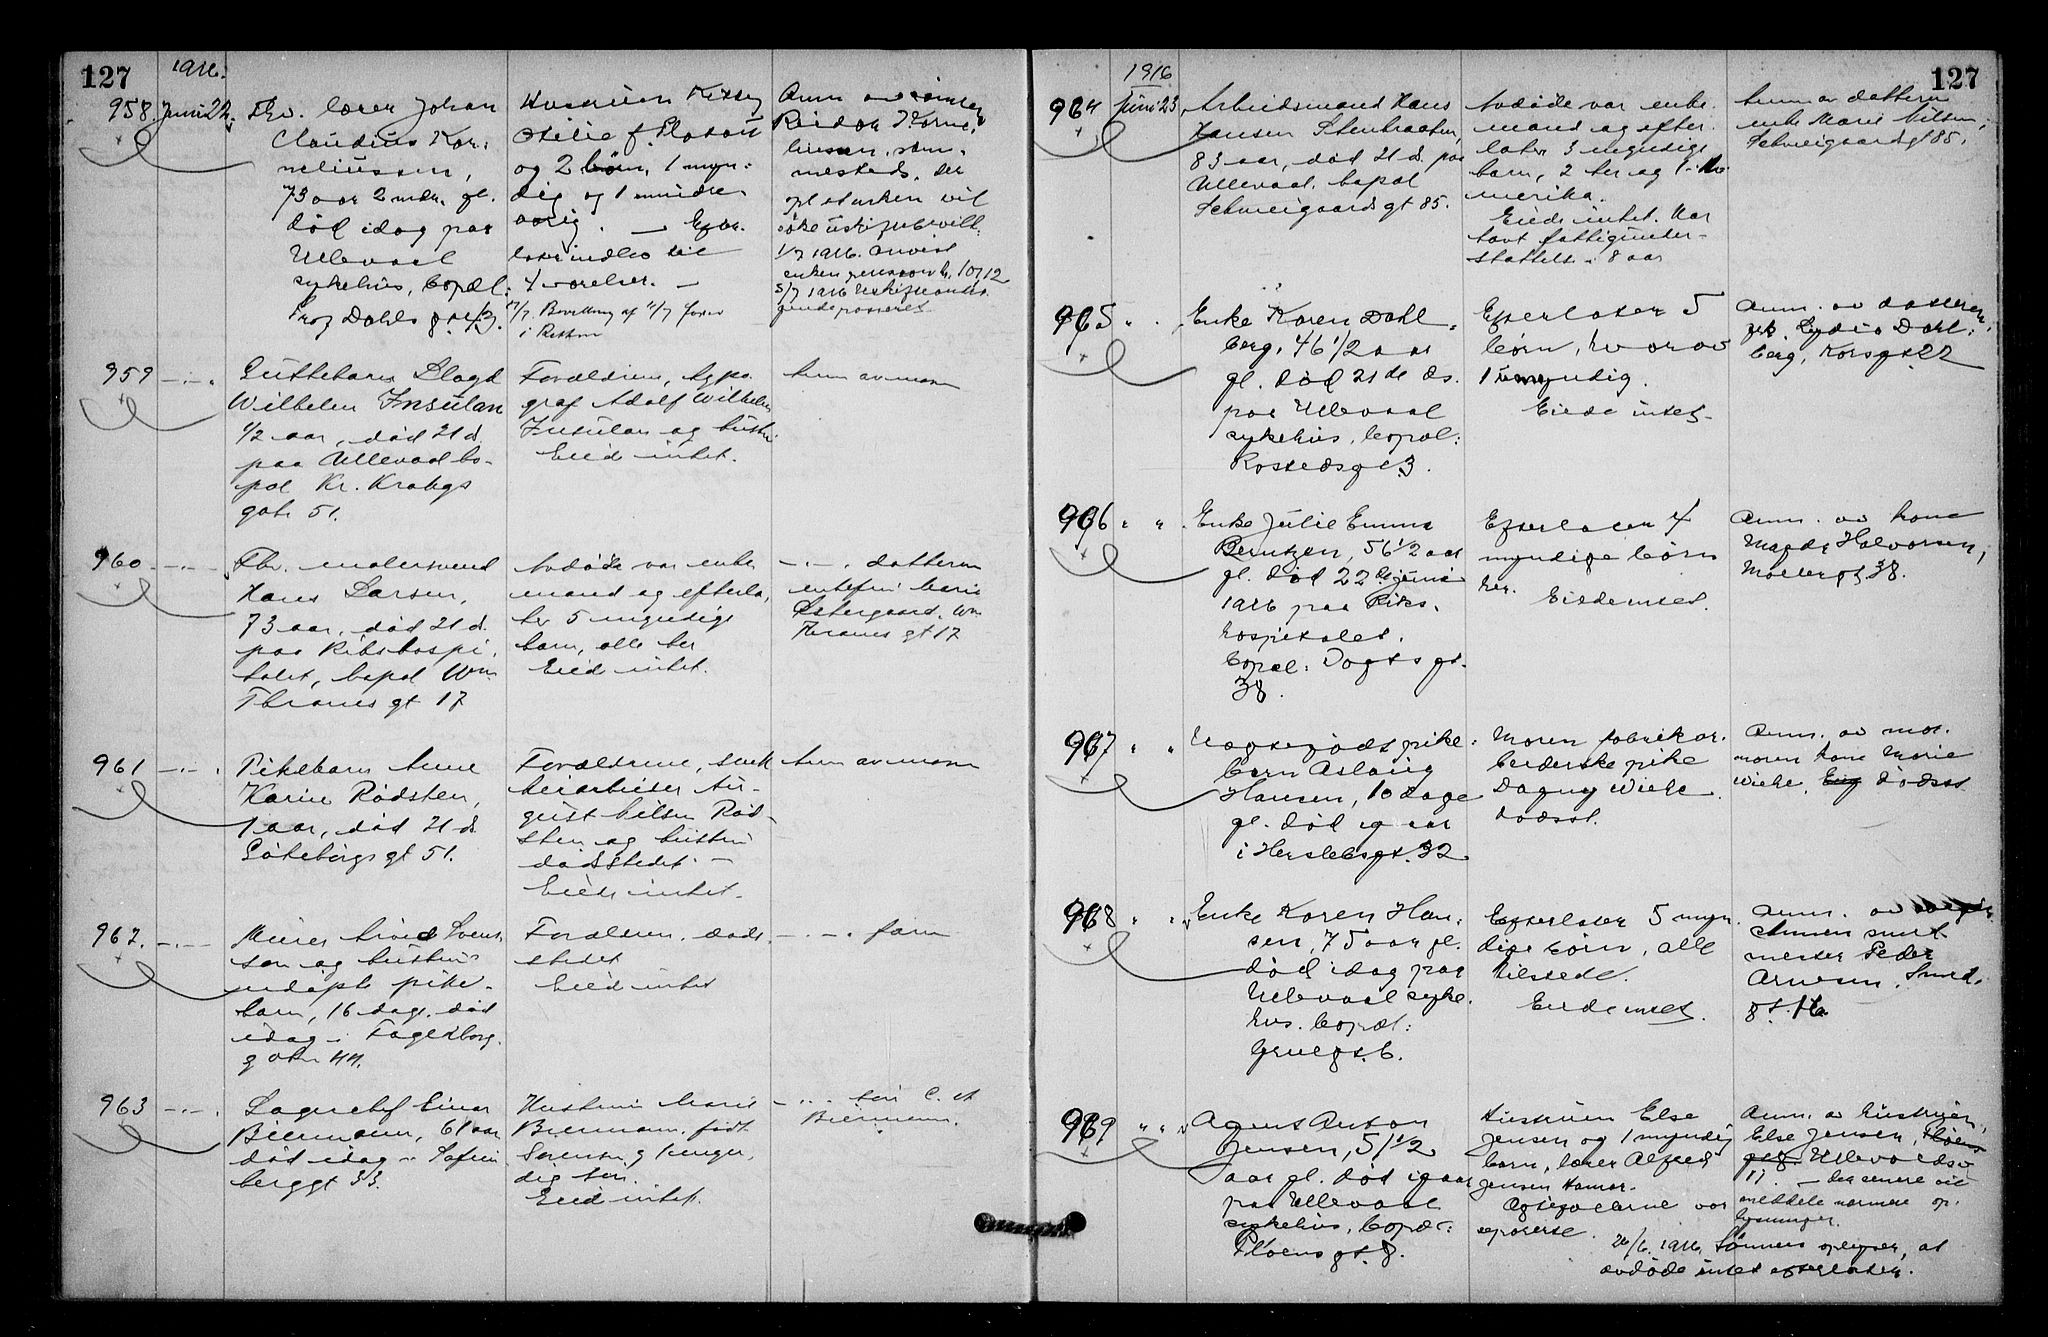 127
1916.
958. Juni 22.
Fhv. lærer Johan
Claudius Kor-
neliussen,
73 aar 2 mdr. gl.
död idag paa
Ullevaal
sykehus, bopæl:
Prof Dahls gt
Hustruen
Otilie f.
og 2 börn, 1 myn-
dig og 1 mindre-
aarig. —
4 værelser. —
i Retten
Anm. av sönnen
Reidar Korne-
liussen, sam-
mesteds, der
paa enken vil
söke uskiftebevill.
1/7 1916. anvist
5/7 1916
959 — " —
Guttebarn
Wilhelm Insulan
1/2 aar, död 21 d.
paa Ullevaal bo-
pæl Kr. Kroghs
gate 51.
Forældrene, typo-
graf Adolf Wilhelm
Insulan og hustru
Eied intet.
Anm av moren
960 — " —
Fhv. malersvend
Hans Larsen,
73 aar, död 21 d.
paa Rikshospi-
talet, bopæl Wm
Thranes gt 17
Avdöde var enke-
mand og efterla-
ter 5 myndige
barn, alle her
Eied intet.
— " — datteren
enkefru Marie
Östergaard, Wm
Thranes gt 17
961 — " —
Pikebarn Anne
Karin Rödsten,
1 aar, död 21 d.
Göteborgs gt 51.
Forældrene,
arbeider
og hustru
dödsstedet. —
Eied intet.
Anm av moren
962. — " —
Arvid Svens-
son og hustrus
udöpte pike-
barn, 16 dage, död
idag i Fagerborg-
gaten 44.
Forældrene, döds-
stedet
Eied intet
— " — faren
963 — " —
Lagerchef Einar
Biermann, 61 aar
död idag i Sofien-
berggt 33.
Hustruen Marie
Biermann, födt
Sörensen, 1 myn-
dig sön.
Eied intet.
— " — sön C. A
Biermann.
127
1916
964 Juni 23
Arbeidsmand Hans
Hansen Stenbraaten,
83 aar, död 21 d. paa
Ullevaal. bopæl
Schweigaards gt 85.
Avdöde var enke-
mand og efter-
later 3 myndige
barn, 2 her og 1 i A-
merika.
Eiede intet. Har
havt fattigunder-
stöttelse i 8 aar
Anm av datteren
enke Marie Nilsen,
Schweigaardsgt 85.
965 " "
Enke Karen Dahl-
berg, 46 1/2 aar
gl. död 21de ds.
paa Ullevaal
sykehus, bopæl:
Rostedsgt 3.
Efterlater 5
börn, hvorav
1 umyndig.
Eiede intet
Anm. av datteren,
frk Lydia Dahl-
berg, Korsgt 22
966 " "
Enke Julie Emma
Berntzen, 56 1/2 aar
gl. död 22de juni
1916 paa Riks-
hospitalet.
bopæl: Vogts gt.
38.
Efterlater 4
myndige börn
her. Eiede intet.
Anm. av kone
Magda Halvorsen,
Möllergt 38.
967 " "
Uegtefödt pike-
barn Aslaug
Hansen, 10 dage
gl. död igaar
i Herslebsgt. 32
Moren fabrikar-
beiderske pike
Dagny Wiche
dödsst.
Anm. av mor-
moren kone Marie
Wiche, dödsst
968 " "
Enke Karen Han-
sen, 75 aar gl.
död idag paa
Ullevaal syke-
hus. bopæl:
Gruegt. 6.
Efterlater 5 myn-
dige börn, alle
tilstede.
Eiede intet.
Anm. av
mester Peder
Arnesen, Smed-
gt. 16
969 " "
Agent Anton
Jensen, 51 1/2
aar gl. död igaar
paa Ullevaal
sykehus, bopæl:
Pløens gt. 8.
Hustruen Else
Jensen og 1 myndig
barn, lærer Alfred
Jensen Hamar.
Ægtefællerne var
separerte.
Anm. av hustruen,
Else Jensen, Pløens
gt 8. Ullevaalsv
11. — der senere vil
meddele nærmere op-
lysninger.
26/6. 1916. Sönnen oplyser, at
avdöde intet efterlater.